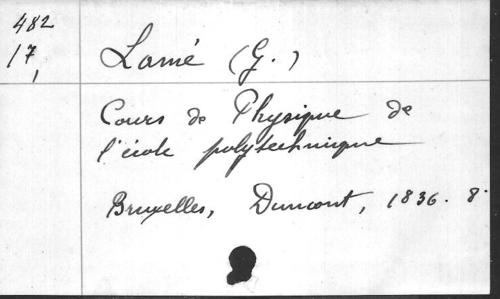 482
17,
Lamé (G.)
Cours de Physique de
l'école polytechnique
Bruxelles, Dumont, 1836. 8°